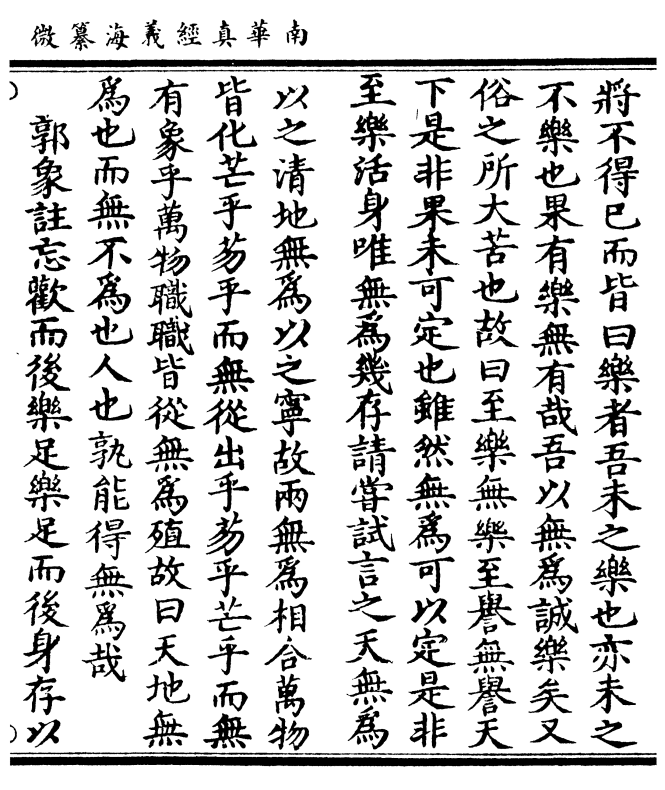 南華真經義海纂微
將不得已而皆曰樂者吾未之樂也亦未之
不樂也果有樂無有哉吾以無為誠樂矣又
俗之所大苦也故曰至樂無樂至譽無譽天
下是非果未可定也雖然無為可以定是非
至樂活身唯無為幾存請嘗試言之天無為
以之清地無為以之寧故兩無為相合萬物
皆化芒乎芴乎而無從出乎芴乎芒乎而無
有象乎萬物職職皆從無為殖故曰天地無
為也而無不為也人也孰能得無為哉
郭象註忘歡而後樂足樂足而後身存以